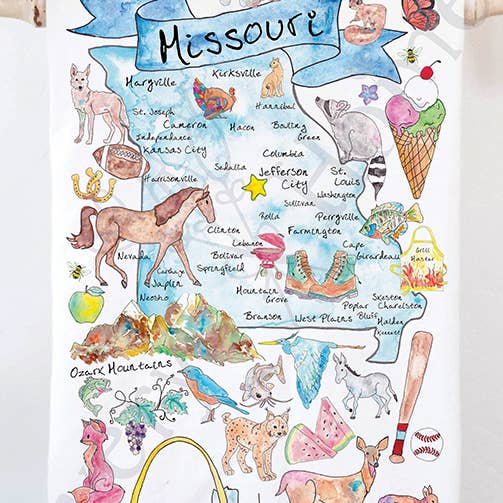 Missouri
Maryville
Kirksville
Hannibal
St. Joseph
Cameron
Macon
Bowling Green
Independance
Kansas City
Columbia
Sedalia
Jefferson City
St. Louis
Harrisonville
Washington
Sullivan
Rolla
Perryville
Clinton
Farmington
Nevada
Lebanon
Bolivar
Cape Girardeau
Grill Master
Carthage
Springfield
Joplin
Neosho
Mountain Grove
Poplar Bluff
Charelston
Branson
West Plains
Malden
Kennett
Ozark Mountains